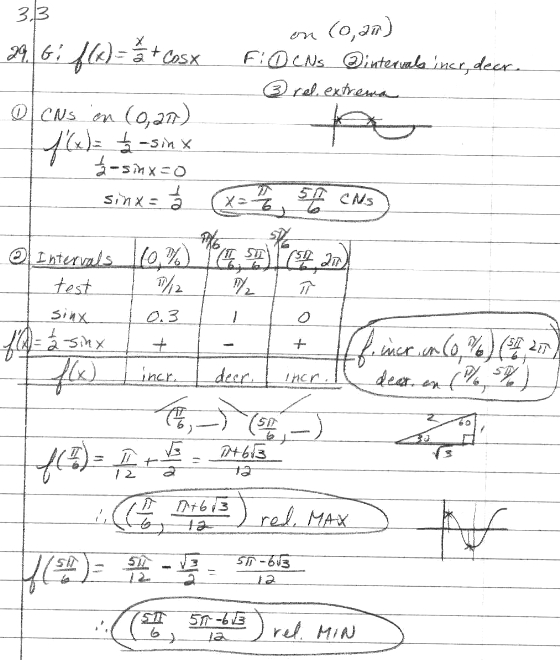 3.3
on (0,2π)
29. G: f(x) = x/2 + cosx F: ① CNs ② intervals incr, decr.
③ rel. extrema
① CNs on (0,2π)
f'(x) = 1/2 - sinx
1/2 - sinx = 0
sinx = 1/2 x = π/6, 5π/6 CNs
π/6 5π/6
② Intervals (0, π/6) (π/6, 5π/6) (5π/6, 2π)
test π/12 π/2 π
sinx 0.3 1 0
f'(x) = 1/2 - sinx + - +
f(x) incr. decr. incr.
f. incr. on (0, π/6) (5π/6, 2π
decr. on (π/6, 5π/6)
(π/6, __) (5π/6, __)
2 60 1
30
√3
f(π/6) = π/12 + √3/2 = π+6√3/12
∴ (π/6, π+6√3/12) rel. MAX
f(5π/6) = 5π/12 - √3/2 = 5π-6√3/12
∴ (5π/6, 5π-6√3/12) rel. MIN